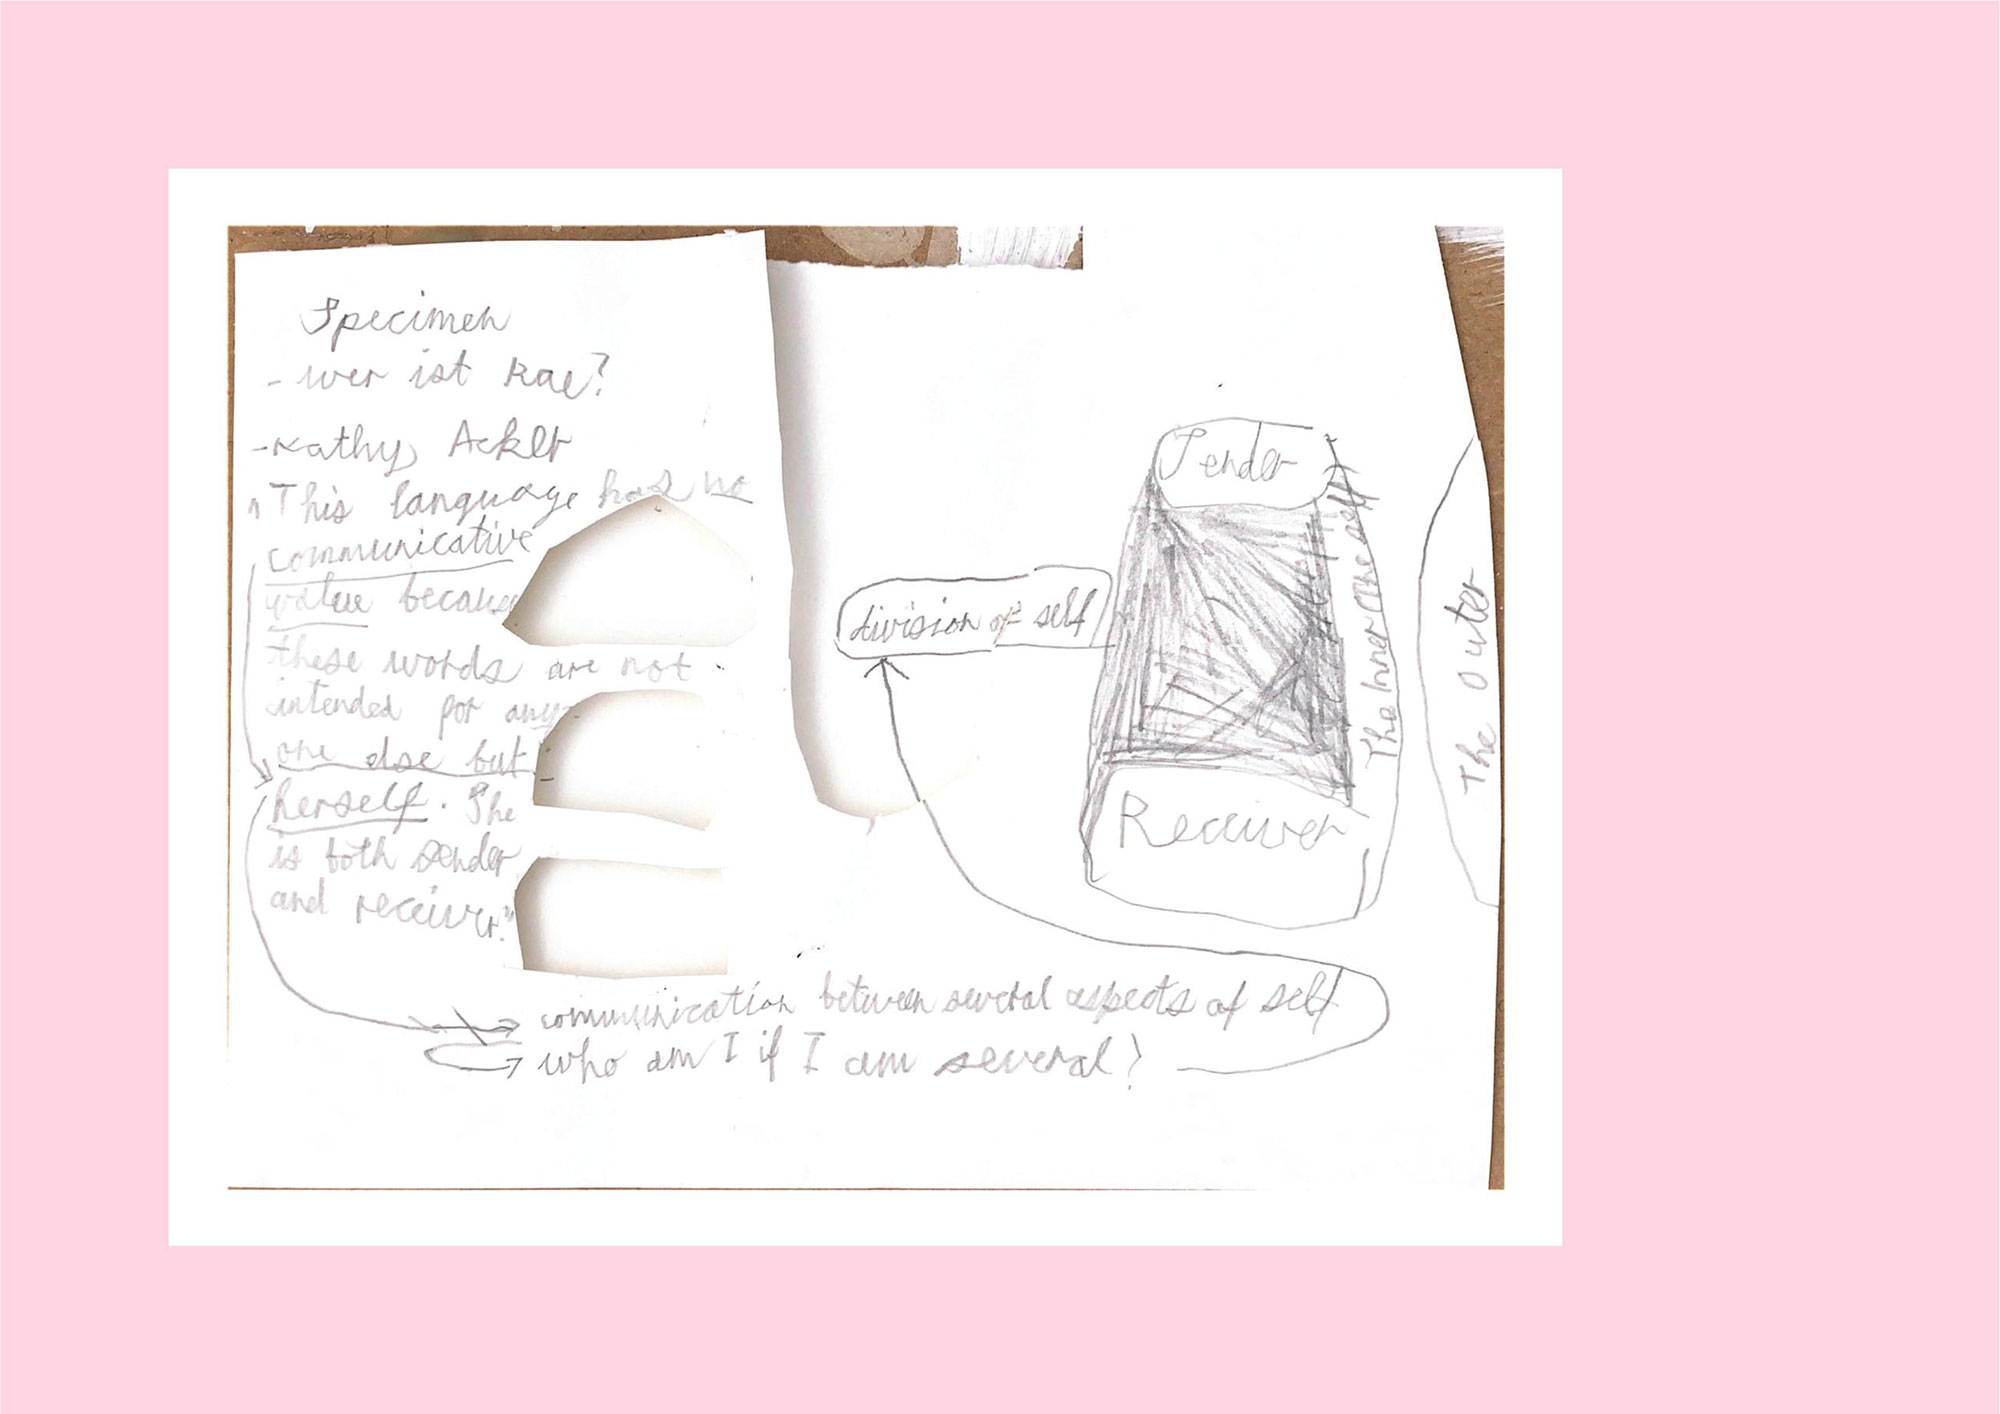 Specimen
- wer ist Kae?
- Kathy Acker
"This language has no
communicative
value because
these words are not
intended for any
one else but
herself. She
is both sender
and receiver."
communication between several aspects of self
who am I if I am several?
division of self
Sender
Receiver
The Inner (The self)
The Outer